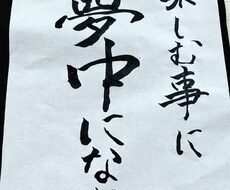 しむ事に
夢中にな